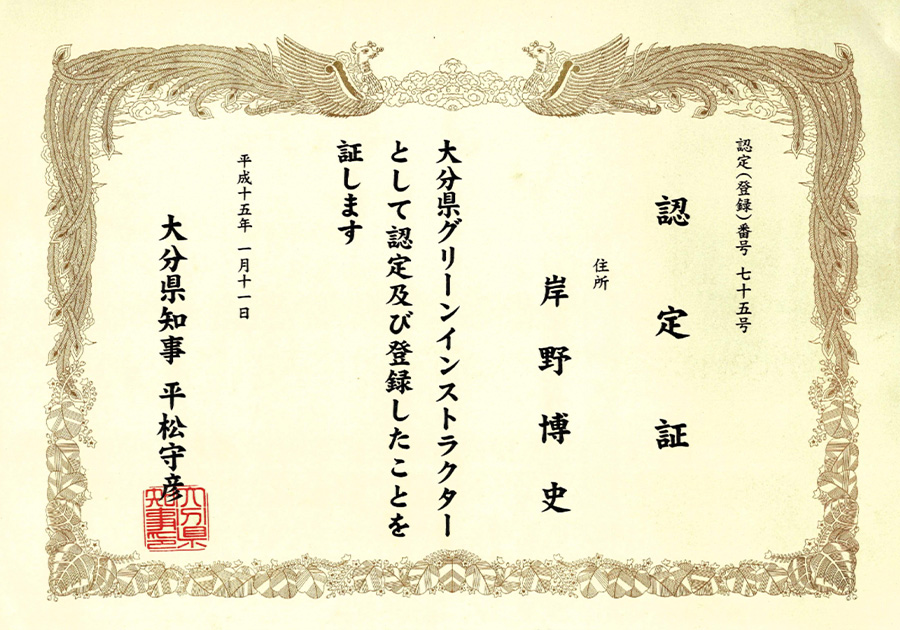 認定(登録)番号 七十五号
認定証
住所
岸野博史
大分県グリーンインストラクター
として認定及び登録したことを
証します
平成十五年 一月十一日
大分県知事 平松守彦
大分県
知事印